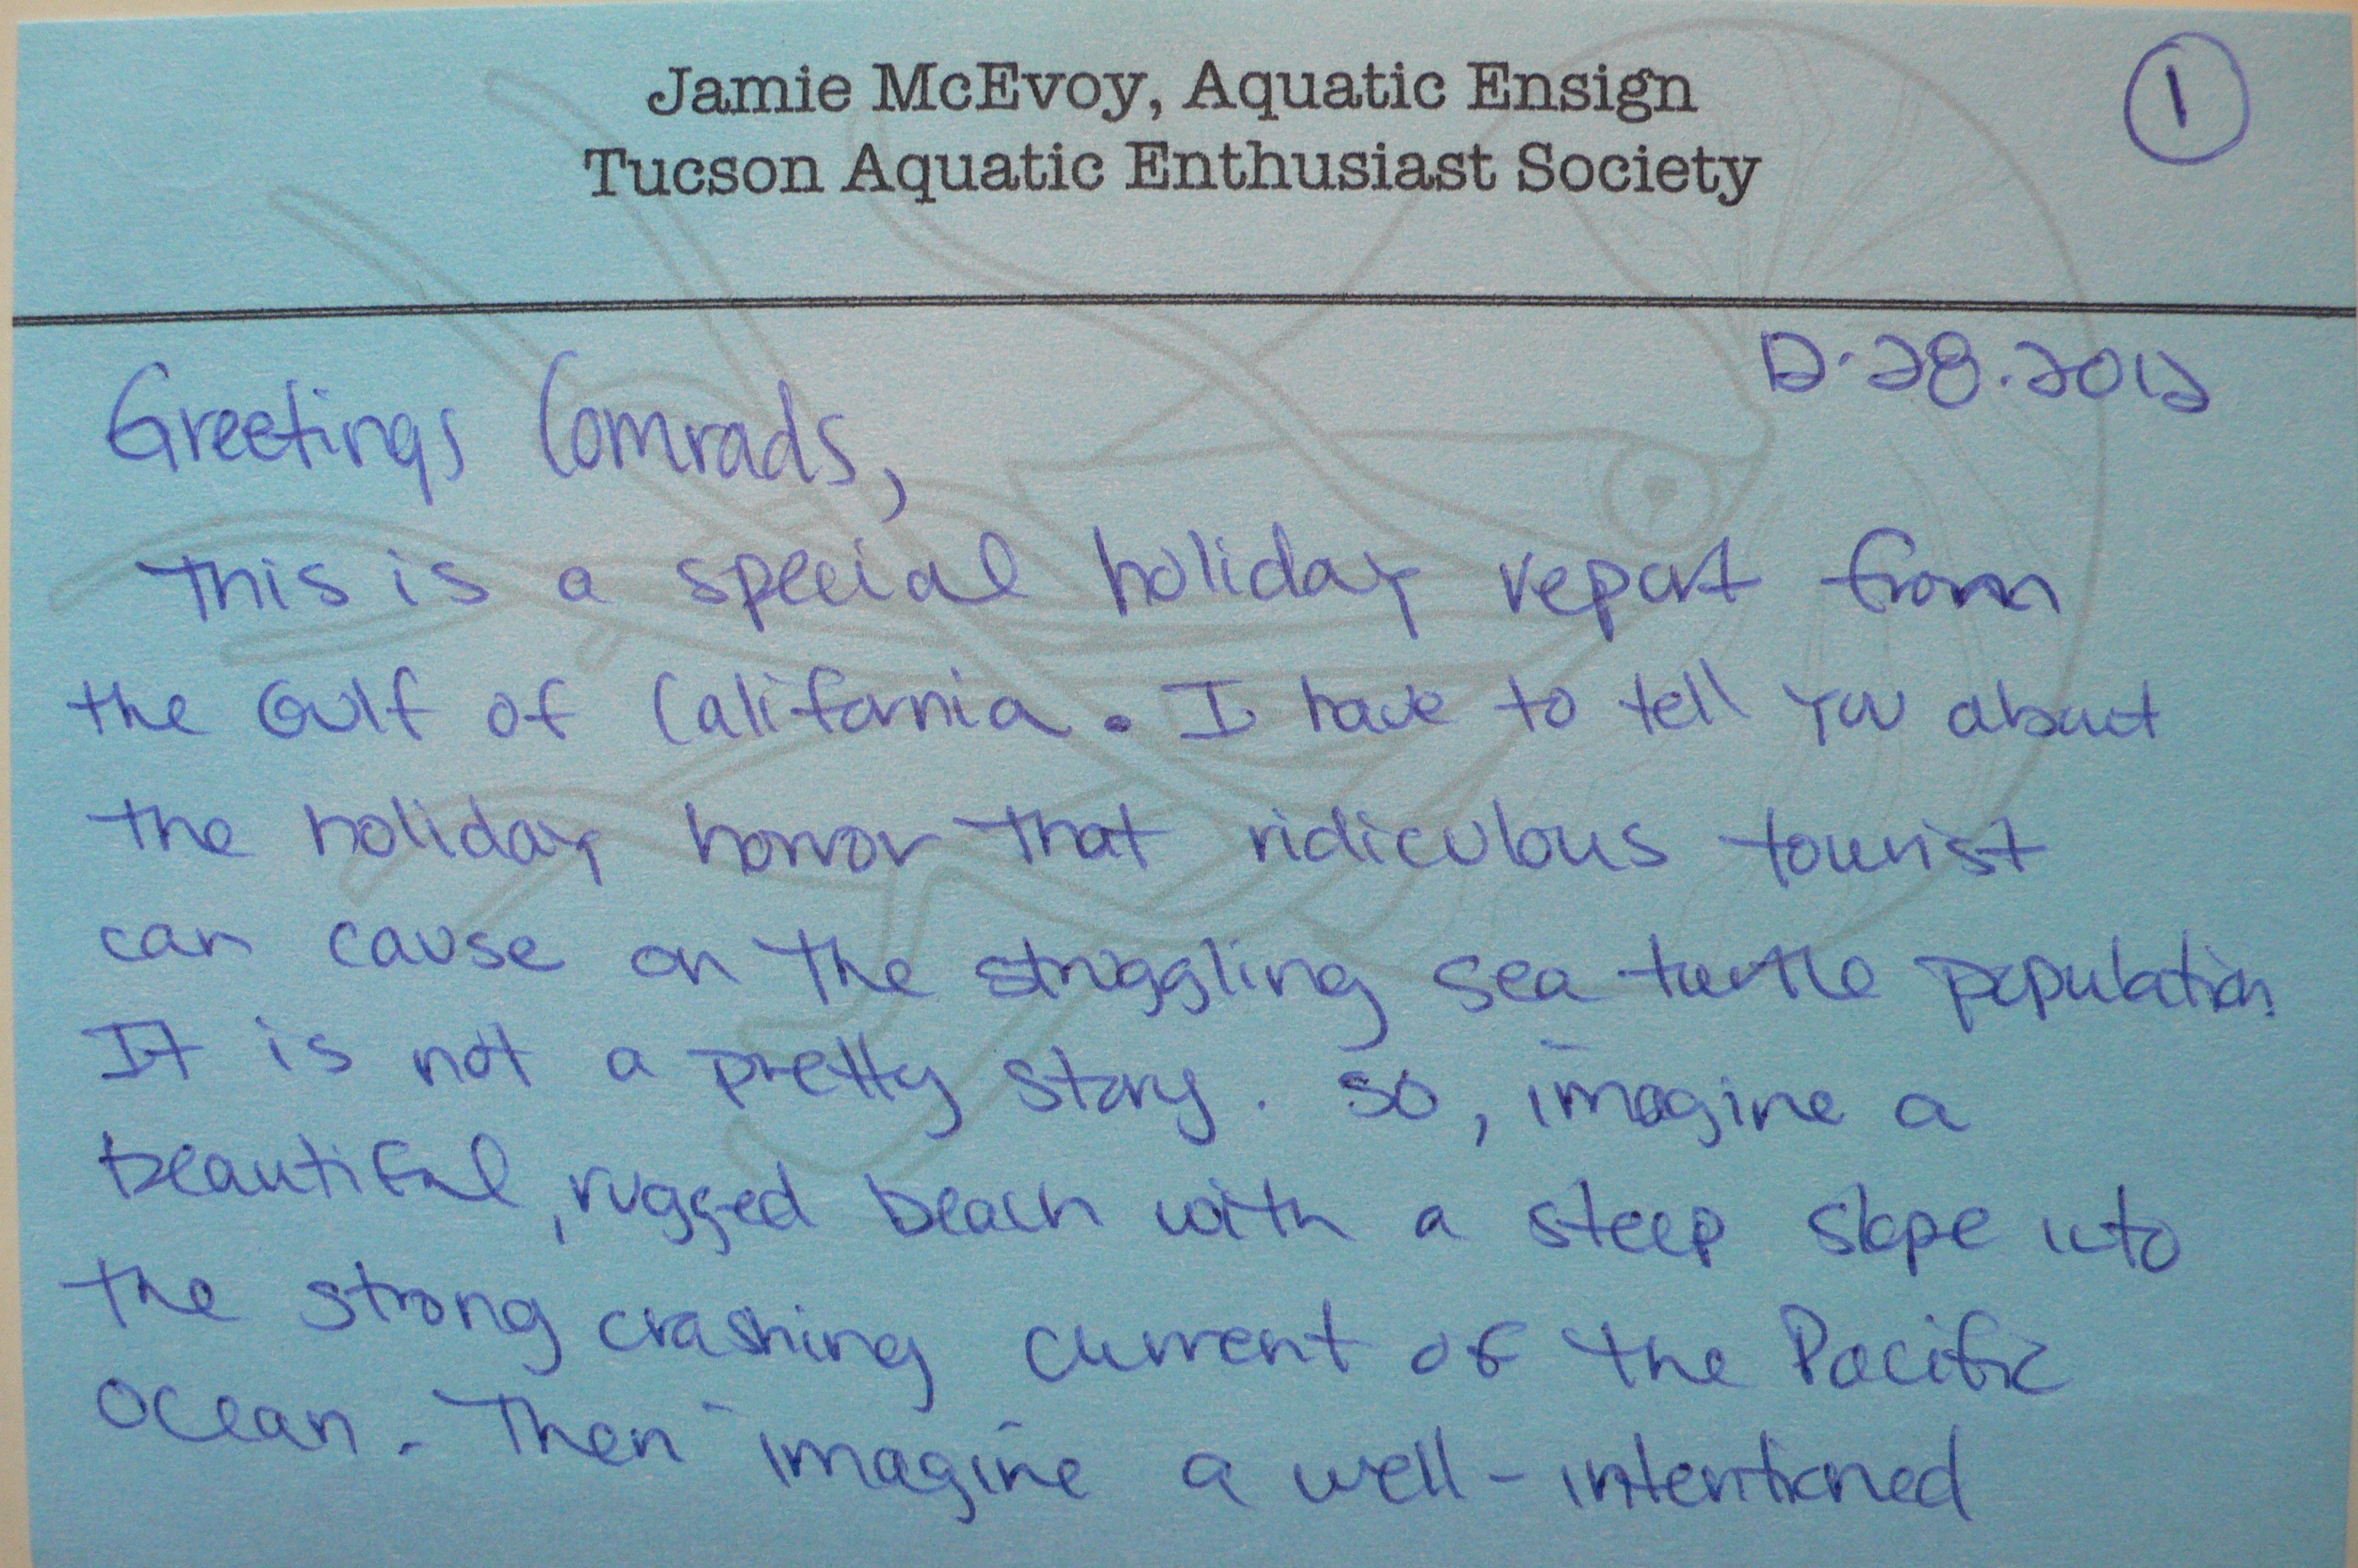 Jamie McEvoy, Aquatic Ensign
1
Tucson Aquatic Enthusiast Society
12.28.2012
Greetings Comrads,
This is a special holiday report from
the Gulf of California. I have to tell you about
the holiday horror that ridiculous tourist
can cause on the struggling sea turtle population.
It is not a pretty story. So, imagine a
beautiful, rugged beach with a steep slope into
the strong crashing current of the Pacific
Ocean. Then imagine a well-intentioned